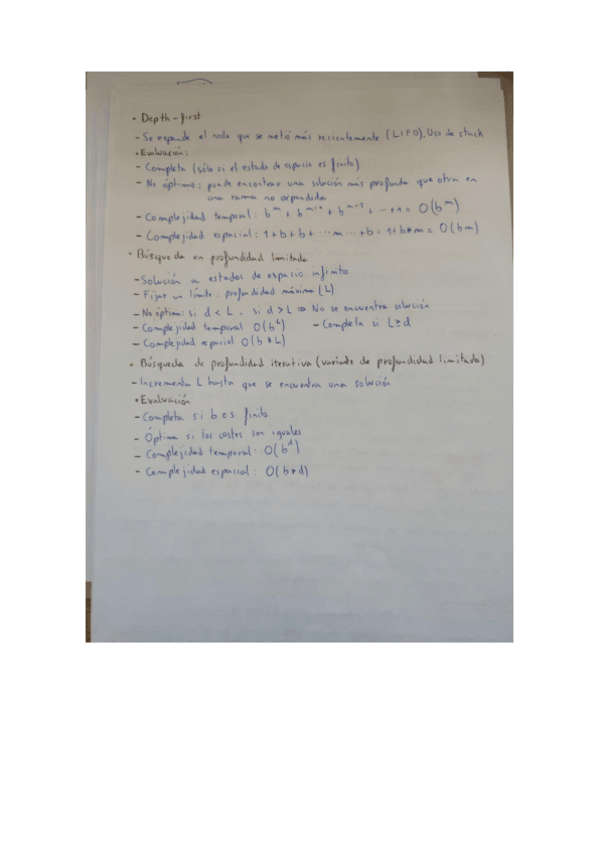 • Depth-first
- Se expande el nodo que se metió más recientemente (LIFO). Uso de stack
• Evaluación:
- Completa (sólo si el estado de espacio es finito)
- No óptima: puede encontrar una solución más profunda que otra en
una rama no expandida
- Complejidad temporal: b^m + b^m-1 + b^m-2 + ... + 1 = O(b^m)
- Complejidad espacial: 1+b+b+ ...m... +b = 1+b*m = O(bm)
• Búsqueda en profundidad limitada
- Solución a estados de espacio infinitos
- Fijar un límite: profundidad máxima (L)
- No óptima: si d < L. si d > L ⇒ No se encuentra solución
- Complejidad temporal O(b^L) - Completa si L ≥ d
- Complejidad espacial O(b*L)
• Búsqueda de profundidad iterativa (variante de profundidad limitada)
- Incrementa L hasta que se encuentra una solución
• Evaluación
- Completa si b es finito
- Óptima si los costes son iguales
- Complejidad temporal: O(b^d)
- Complejidad espacial: O(b*d)